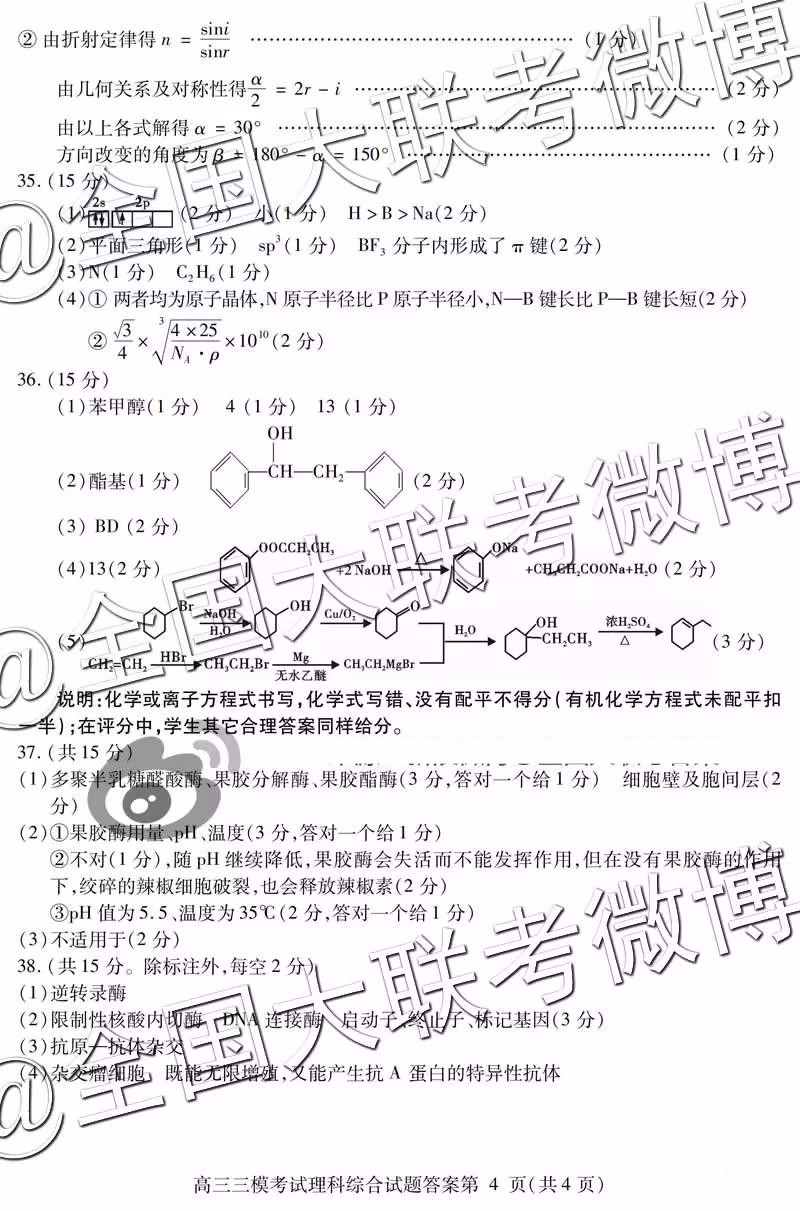 ② 由折射定律得 n = sini/sinr ………………………………………… (1 分)
由几何关系及对称性得 α/2 = 2r − i ………………………………………… (2 分)
由以上各式解得 α = 30° ………………………………………… (2 分)
方向改变的角度为 β = 180° − α = 150° ………………………………………… (1 分)
35. (15 分)
(1) 2s 2p (2 分) 小(1 分) H > B > Na(2 分)
(2)平面三角形(1 分) sp³(1 分) BF₃ 分子内形成了 π 键(2 分)
(3)N(1 分) C₂H₆(1 分)
(4)① 两者均为原子晶体,N 原子半径比 P 原子半径小,N—B 键长比 P—B 键长短(2 分)
② √3/4 × ³√(4×25/(N_A·ρ)) ×10¹⁰(2 分)
36. (15 分)
(1)苯甲醇(1 分) 4 (1 分) 13 (1 分)
OH
(2)酯基(1 分) CH—CH₂ (2 分)
(3) BD (2 分)
(4)13(2 分) OOCCH₂CH₃ +2 NaOH △ ONa +CH₃CH₂COONa+H₂O (2 分)
(5) Br NaOH H₂O OH Cu/O₂ O H₂O OH CH₂CH₃ 浓H₂SO₄ △ (3 分)
CH₂=CH₂ HBr CH₃CH₂Br Mg 无水乙醚 CH₃CH₂MgBr
说明:化学或离子方程式书写,化学式写错、没有配平不得分(有机化学方程式未配平扣
一半);在评分中,学生其它合理答案同样给分。
37. (共 15 分)
(1)多聚半乳糖醛酸酶、果胶分解酶、果胶酯酶(3 分,答对一个给 1 分) 细胞壁及胞间层(2
分)
(2)①果胶酶用量、pH、温度(3 分,答对一个给 1 分)
②不对(1 分),随 pH 继续降低,果胶酶会失活而不能发挥作用,但在没有果胶酶的作用
下,绞碎的辣椒细胞破裂,也会释放辣椒素(2 分)
③pH 值为 5.5、温度为 35℃(2 分,答对一个给 1 分)
(3)不适用于(2 分)
38. (共 15 分。除标注外,每空 2 分)
(1)逆转录酶
(2)限制性核酸内切酶 DNA 连接酶 启动子、终止子、标记基因(3 分)
(3)抗原—抗体杂交
(4)杂交瘤细胞 既能无限增殖,又能产生抗 A 蛋白的特异性抗体
高三三模考试理科综合试题答案第 4 页(共 4 页)
@全国大联考微博
@全国大联考微博
@全国大联考微博